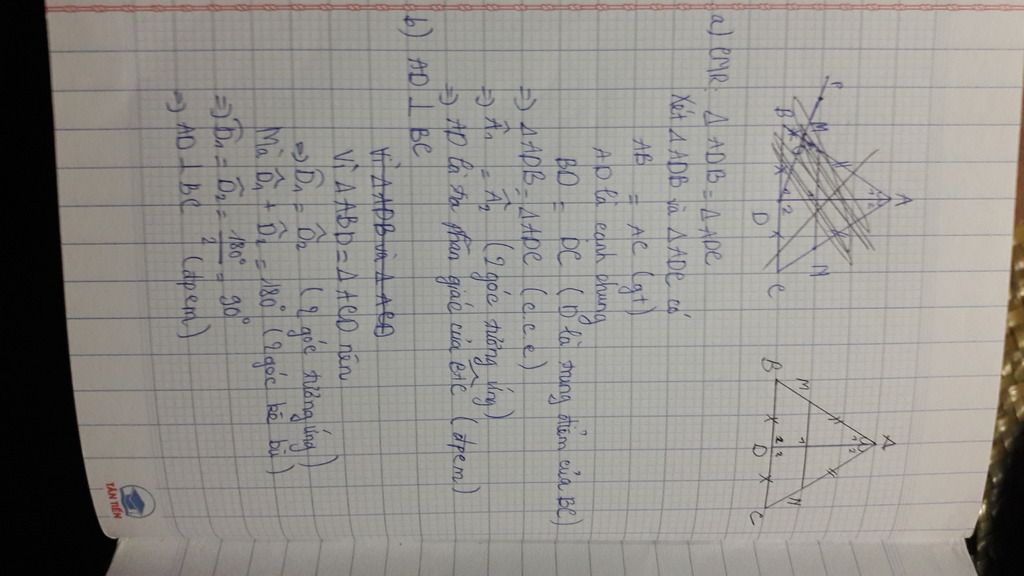 A
1 2
M
N
P
B
1 2
D
C
A
1 2
M
N
1
B
1 2
D
C
a) CMR: Δ ADB = Δ ADC
Xét Δ ADB và Δ ADC có
AB = AC (gt)
AD là cạnh chung
BD = DC (D là trung điểm của BC)
=) Δ ADB = Δ ADC (c c c)
=) Â1 = Â2 (2 góc tương ứng)
=) AD là tia phân giác của BÂC (đpcm)
b) AD ⊥ BC
Vì Δ ADB và Δ ACD
Vì Δ ABD = Δ ACD nên
=) D̂1 = D̂2 (2 góc tương ứng)
Mà D̂1 + D̂2 = 180° (2 góc kề bù)
=) D̂1 = D̂2 = 180°/2 = 90°
=) AD ⊥ BC (đpcm)
TÂN TIẾN